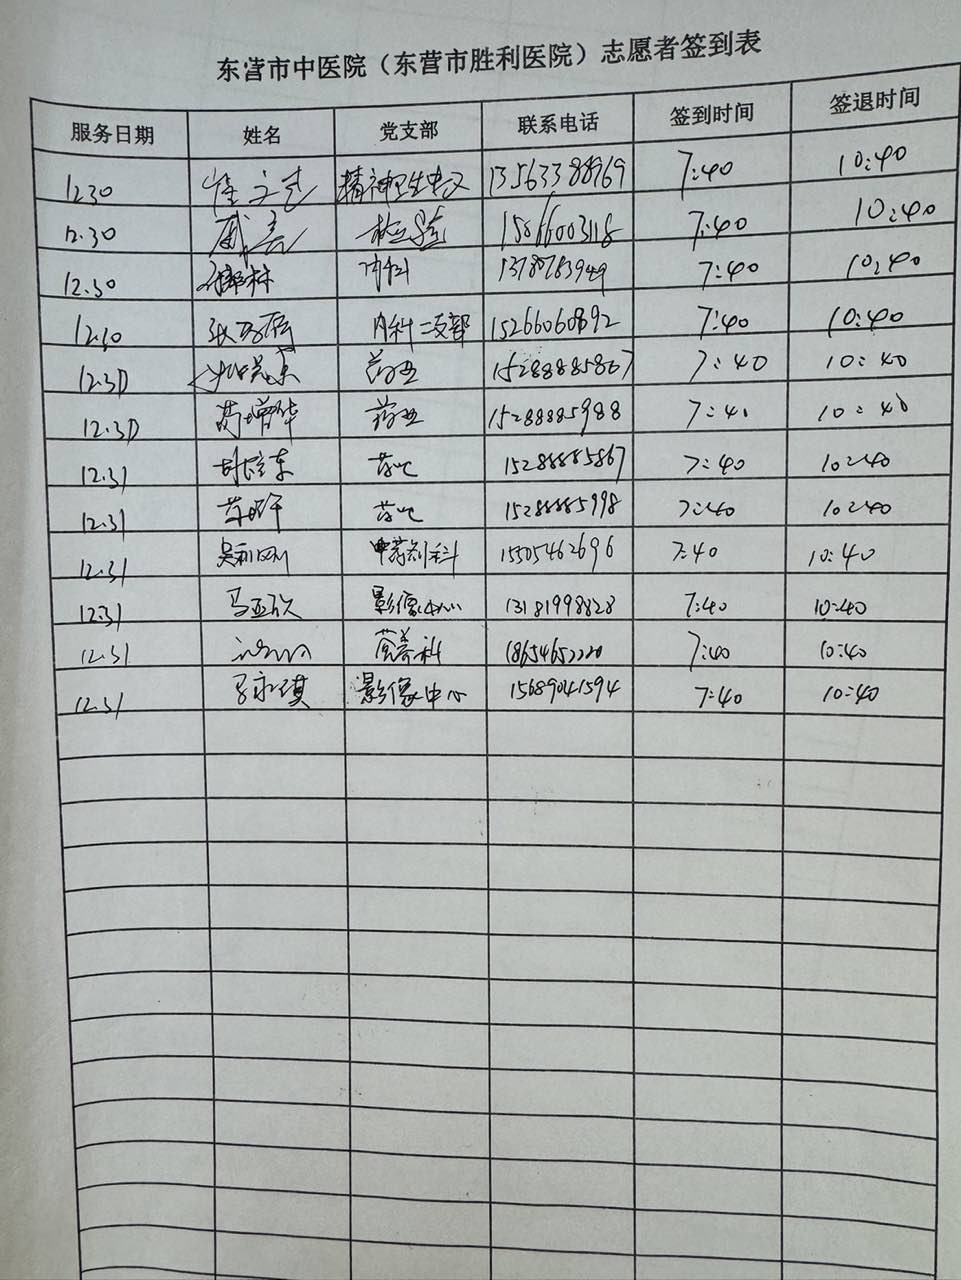 东营市中医院（东营市胜利医院）志愿者签到表
服务日期 姓名 党支部 联系电话 签到时间 签退时间
12.30 精神卫生中心 13563388969 7:40 10:40
12.30 检验 15866003118 7:40 10:40
12.30 林 内科 13787839 7:40 10:40
12.30 张 内科二支部 15266060892 7:40 10:40
12.30 药业 15288885867 7:40 10:40
12.30 增华 药业 15288885988 7:40 10:40
12.31 东 15288885867 7:40 10:40
12.31 15288885998 7:40 10:40
12.31 吴利 中药剂科 15505462696 7:40 10:40
12.31 马亚欣 影像中心 13181998828 7:40 10:40
12.31 营养科 18654652220 7:40 10:40
12.31 永琪 影像中心 15689041594 7:40 10:40